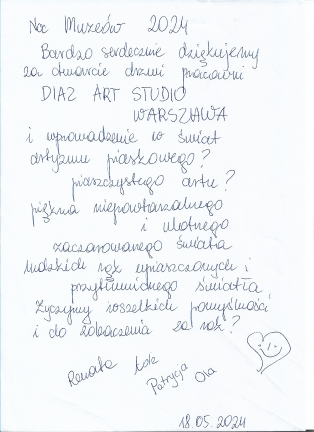 Noc Muzeów 2024
Bardzo serdecznie dziękujemy
za otwarcie drzwi pracowni
DIAZ ART STUDIO
WARSZAWA
i wprowadzenie w świat
artyzmu piaskowego?
piaszczystego artu?
piękna niepowtarzalnego
i ulotnego
zaczarowanego świata
ludzkich rąk upiaszczonych i
przytłumionego światła
Życzymy wszelkich pomyślności
i do zobaczenia za rok?
Renata
Patrycja
Ola
18.05.2024